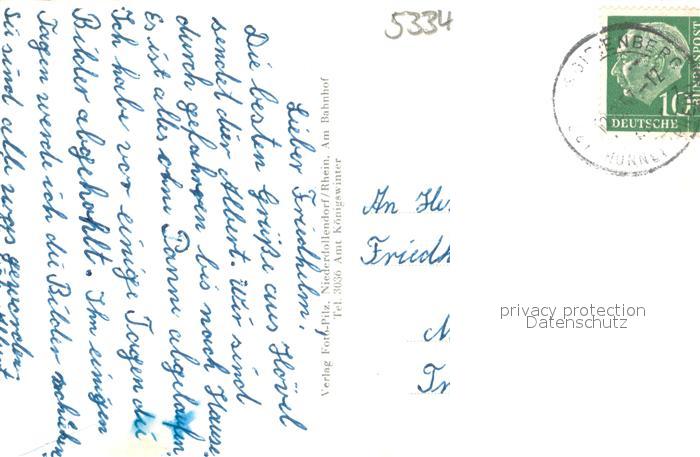 5334
10
DEUTSCHE
BUNDESPOST
Lieber Friedhelm!
Die besten Grüße aus Hövel
sendet dir Albert. Wir sind
durch gefahren bis nach Hause.
Es ist alles ohne Panne abgelaufen.
Ich habe vor einige Tagen die
Bilder abgehohlt. Ihn einigen
Tagen werde ich die Bilder schicken
Sie sind alle
Albert
Verlag Foto-Pilz, Niederdollendorf/Rhein, Am Bahnhof
Tel. 3036 Amt Königswinter
An He
Friedh
privacy protection
Datenschutz